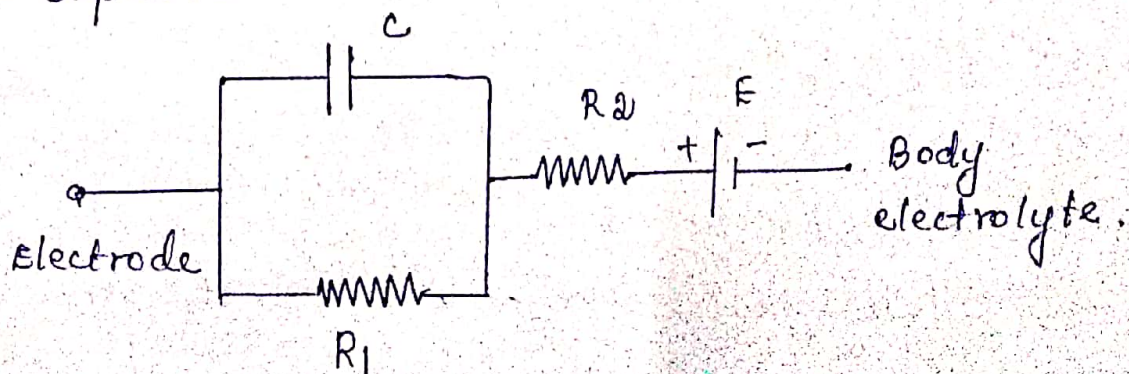 C
R2
E
+ -
Body
electrolyte.
Electrode
R1